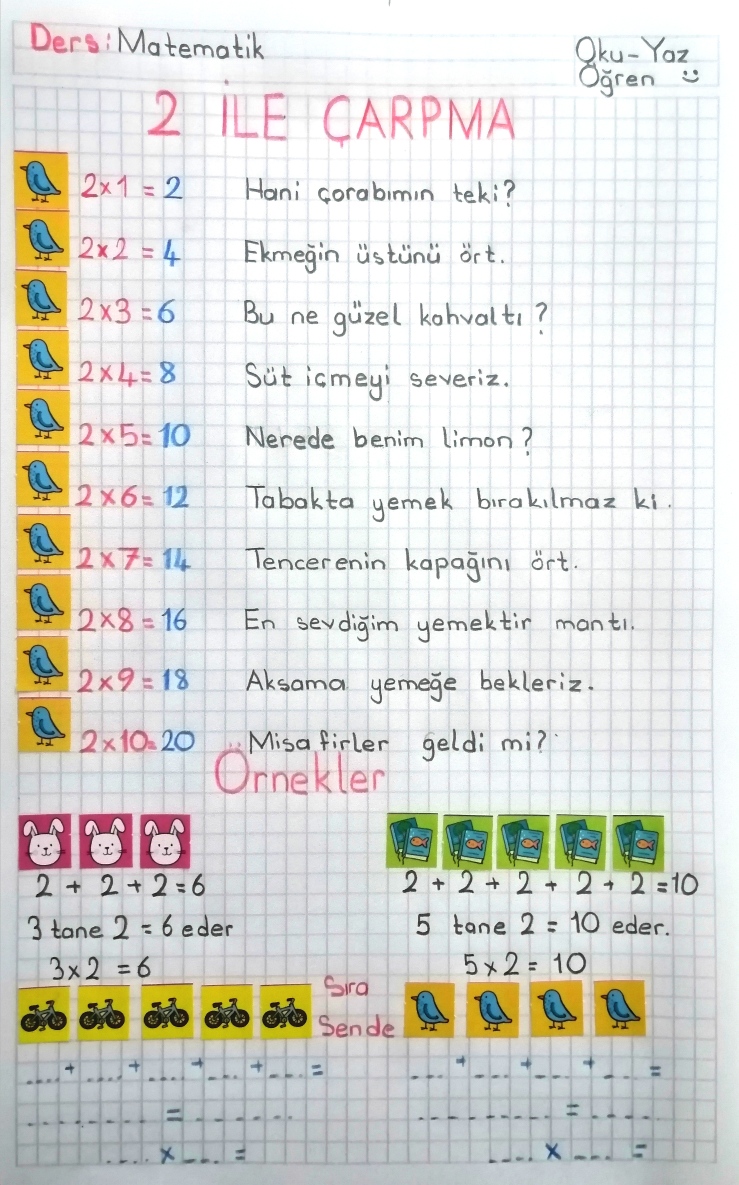 Ders: Matematik
Oku-Yaz
Öğren
2 İLE ÇARPMA
2x1 = 2 Hani çorabımın teki?
2x2 = 4 Ekmeğin üstünü ört.
2x3 = 6 Bu ne güzel kahvaltı?
2x4 = 8 Süt içmeyi severiz.
2x5 = 10 Nerede benim limon?
2x6 = 12 Tabakta yemek bırakılmaz ki.
2x7 = 14 Tencerenin kapağını ört.
2x8 = 16 En sevdiğim yemektir mantı.
2x9 = 18 Aksama yemeğe bekleriz.
2x10 = 20 Misafirler geldi mi?
Örnekler
2 + 2 + 2 = 6
3 tane 2 = 6 eder
3x2 = 6
2 + 2 + 2 + 2 + 2 = 10
5 tane 2 = 10 eder.
5x2 = 10
Sıra
Sende
.... + .... + .... + .... + .... =
.......... = ..........
.... x .... =
.... + .... + .... + .... =
.......... = ..........
.... x .... =